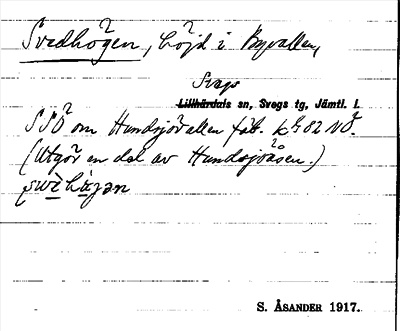 Svedhögen, höjd i Byvallen,
Svegs
Lillhärdals sn, Svegs tg, Jämtl. l.
SSÖ om Hundsjövallen fäb. k 82 NÖ.
(Utgör en del av Hundsjöåsen.)
S. ÅSANDER 1917.